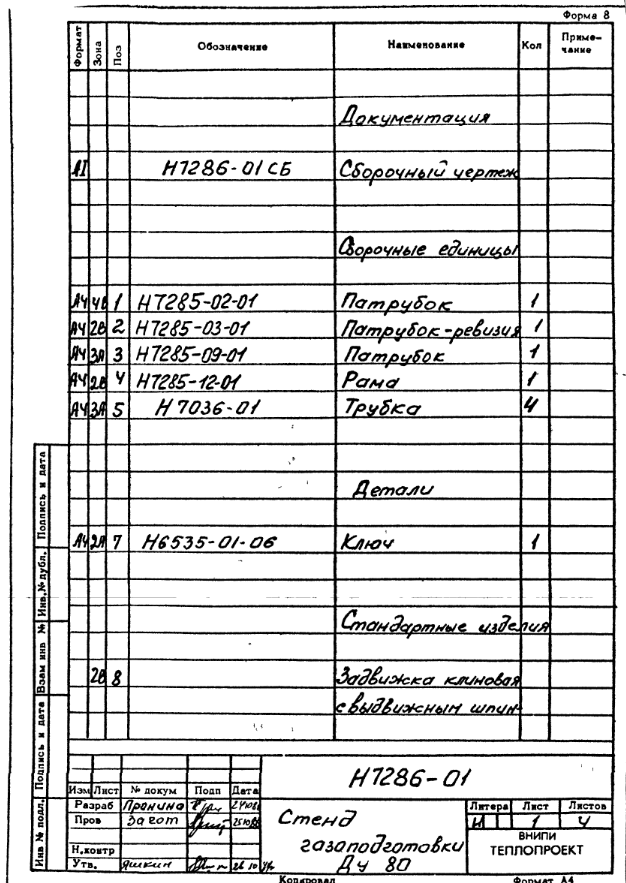 Форма 8
Формат Зона Поз Обозначение Наименование Кол Приме-
чание
Документация
АI Н7286-01 СБ Сборочный чертеж
Сборочные единицы
А4 4В 1 Н7285-02-01 Патрубок 1
А4 2В 2 Н7285-03-01 Патрубок-ревизия 1
А4 3А 3 Н7285-09-01 Патрубок 1
А4 2В 4 Н7285-12-01 Рама 1
А4 3А 5 Н7036-01 Трубка 4
Детали
А4 2А 7 Н6535-01-06 Ключ 1
Стандартные изделия
2В 8 Задвижка клиновая
с выдвижным шпин-
Инв № подл. Подпись и дата Взам инв № Инв.№ дубл. Подпись и дата
Н7286-01
Изм Лист № докум Подп Дата
Разраб Пронина
Пров Загот
Н.контр
Утв. Яшкин
Стенд
газаподготовки
Ду 80
Литера Лист Листов
И 1 4
ВНИПИ
ТЕПЛОПРОЕКТ
Копировал Формат А4